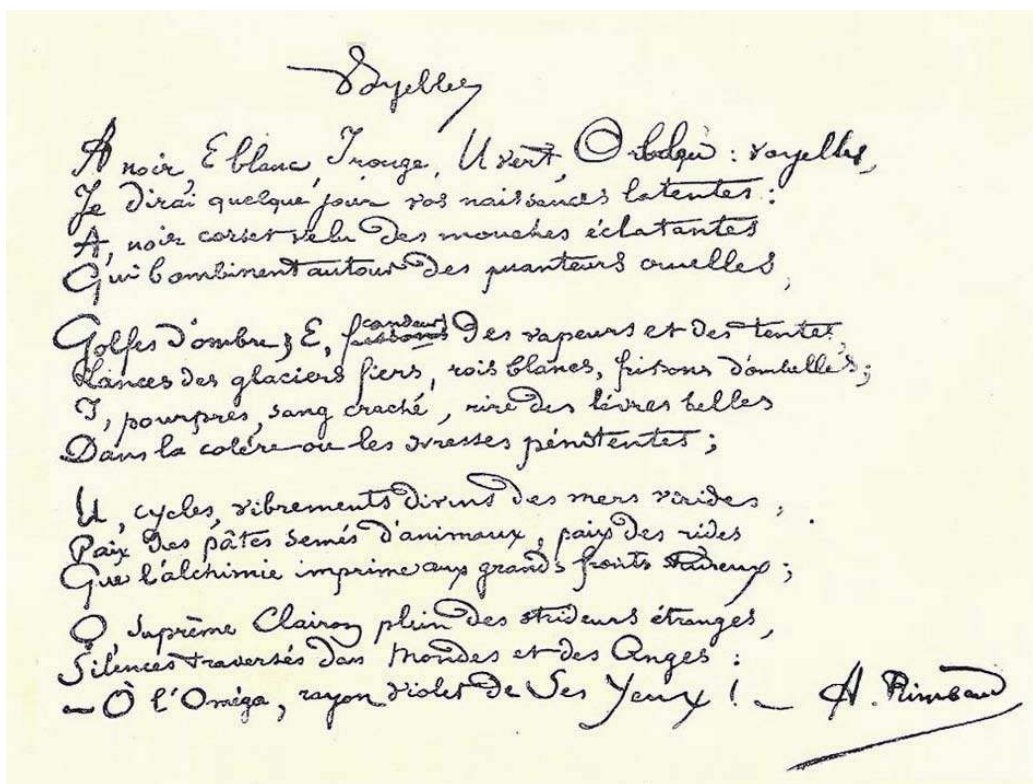 Voyelles
A noir, E blanc, I rouge, U vert, O bleu : voyelles,
Je dirai quelque jour vos naissances latentes :
A, noir corset velu des mouches éclatantes
Qui bombinent autour des puanteurs cruelles,
Golfes d'ombre ; E, candeurs des vapeurs et des tentes,
Lances des glaciers fiers, rois blancs, frissons d'ombelles ;
I, pourpres, sang craché, rire des lèvres belles
Dans la colère ou les ivresses pénitentes ;
U, cycles, vibrements divins des mers virides,
Paix des pâtis semés d'animaux, paix des rides
Que l'alchimie imprime aux grands fronts studieux ;
O, suprême Clairon plein des strideurs étranges,
Silences traversés des Mondes et des Anges :
– O l'Oméga, rayon violet de Ses Yeux ! –
A. Rimbaud